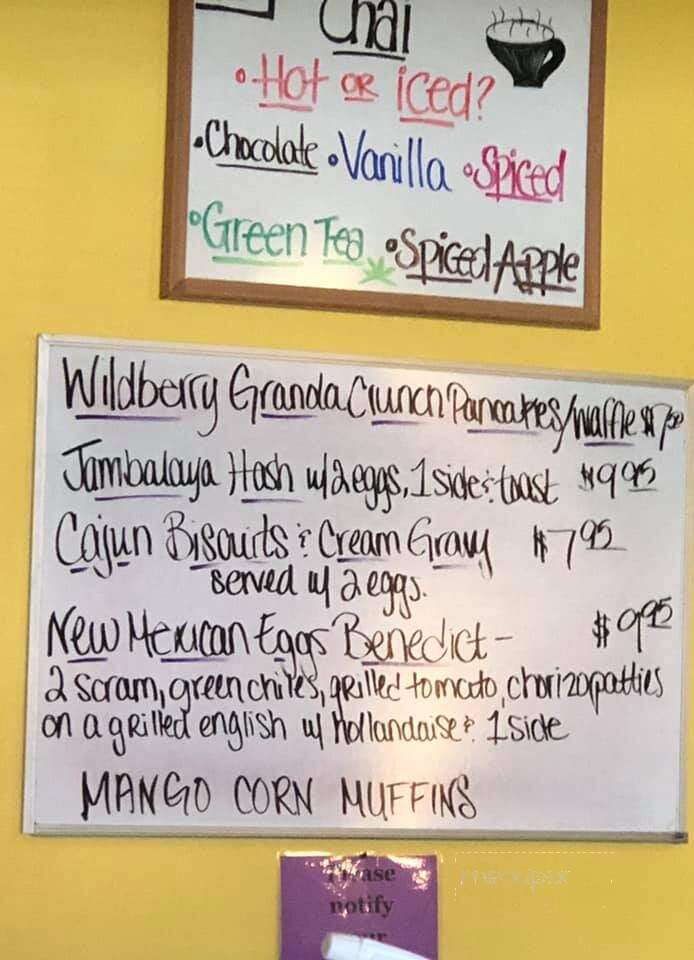 Chai
•Hot or iced?
•Chocolate •Vanilla •Spiced
•Green Tea •Spiced Apple
Wildberry Granola Crunch Pancakes/Waffle $7
Jambalaya Hash w/2eggs, 1 side & toast $9.95
Cajun Biscuits & Cream Gravy $7.95
served w/ 2 eggs.
New Mexican Eggs Benedict - $9.95
2 scram, green chiles, grilled tomato, chorizo patties
on a grilled english w/ hollandaise & 1 side
MANGO CORN MUFFINS
Please
notify